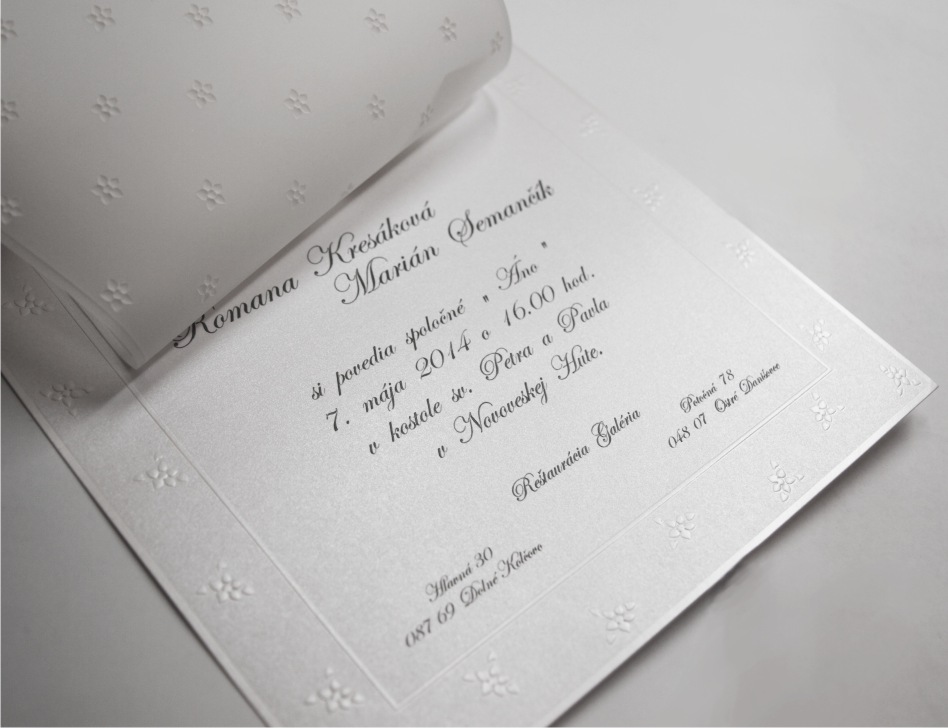 Romana Kresáková
Marián Semančík
si povedia spoločné " Áno "
7. mája 2014 o 16.00 hod.
v kostole sv. Petra a Pavla
v Novoveskej Hute.
Reštaurácia Galéria
Potočná 78
048 07 Ostré Danišovce
Hlavná 30
087 69 Dolné Kolčovo